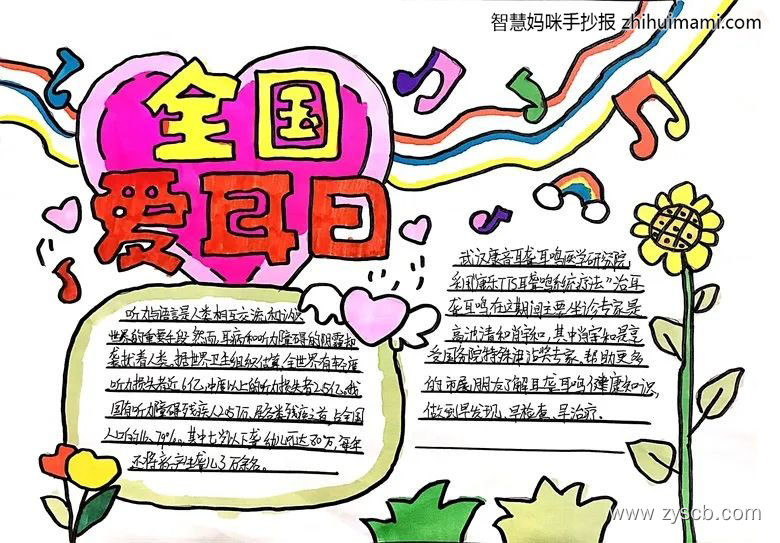 智慧妈咪手抄报 zhihuimami.com
全国
爱耳日
听力与语言是人类相互交流和认识
世界的重要手段，然而，耳病和听力障碍的阴霾却
袭扰着人类。据世界卫生组织估算，全世界有轻度
听力损失者近6亿，中度以上的听力损失者2.5亿。我
国有听力障碍残疾人2057万，居各类残疾之首，占全国
人口的16.79%。其中七岁以下聋幼儿可达80万，每年
还将新产生聋儿3万余名。
武汉康音耳聋耳鸣医学研究院，
"治耳
聋耳鸣在这期间主要坐诊专家是
高波清和肖宇和，其中肖宇和是享
受国务院特殊津贴奖专家，帮助更多
的市属朋友了解耳聋耳鸣健康知识，
做到早发现、早检查、早治疗.
www.zyscb.com